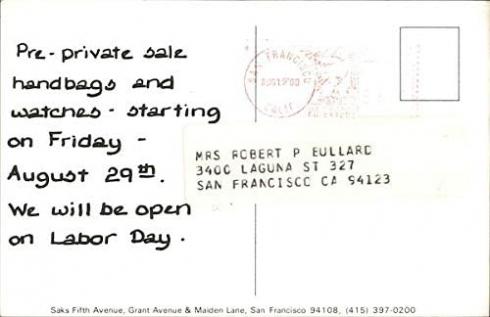 Pre-private sale
handbags and
watches - starting
on Friday -
August 29th.
We will be open
on Labor Day.
SAN FRANCISCO
CALIF
MRS ROBERT P EULLARD
3400 LAGUNA ST 327
SAN FRANCISCO CA 94123
Saks Fifth Avenue, Grant Avenue & Maiden Lane, San Francisco 94108, (415) 397-0200